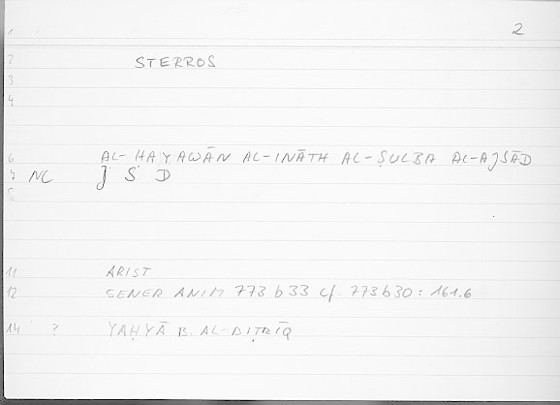 2
1
2 STERROS
3
4
6 AL-ḤAYAWĀN AL-INĀTH AL-ṢULBA AL-AJSĀD
NC J S D
11 ARIST
12 GENER ANIM 773 b 33 cf. 773b30 : 161.6
14 ? YAḤYĀ B. AL-BIṬRĪQ